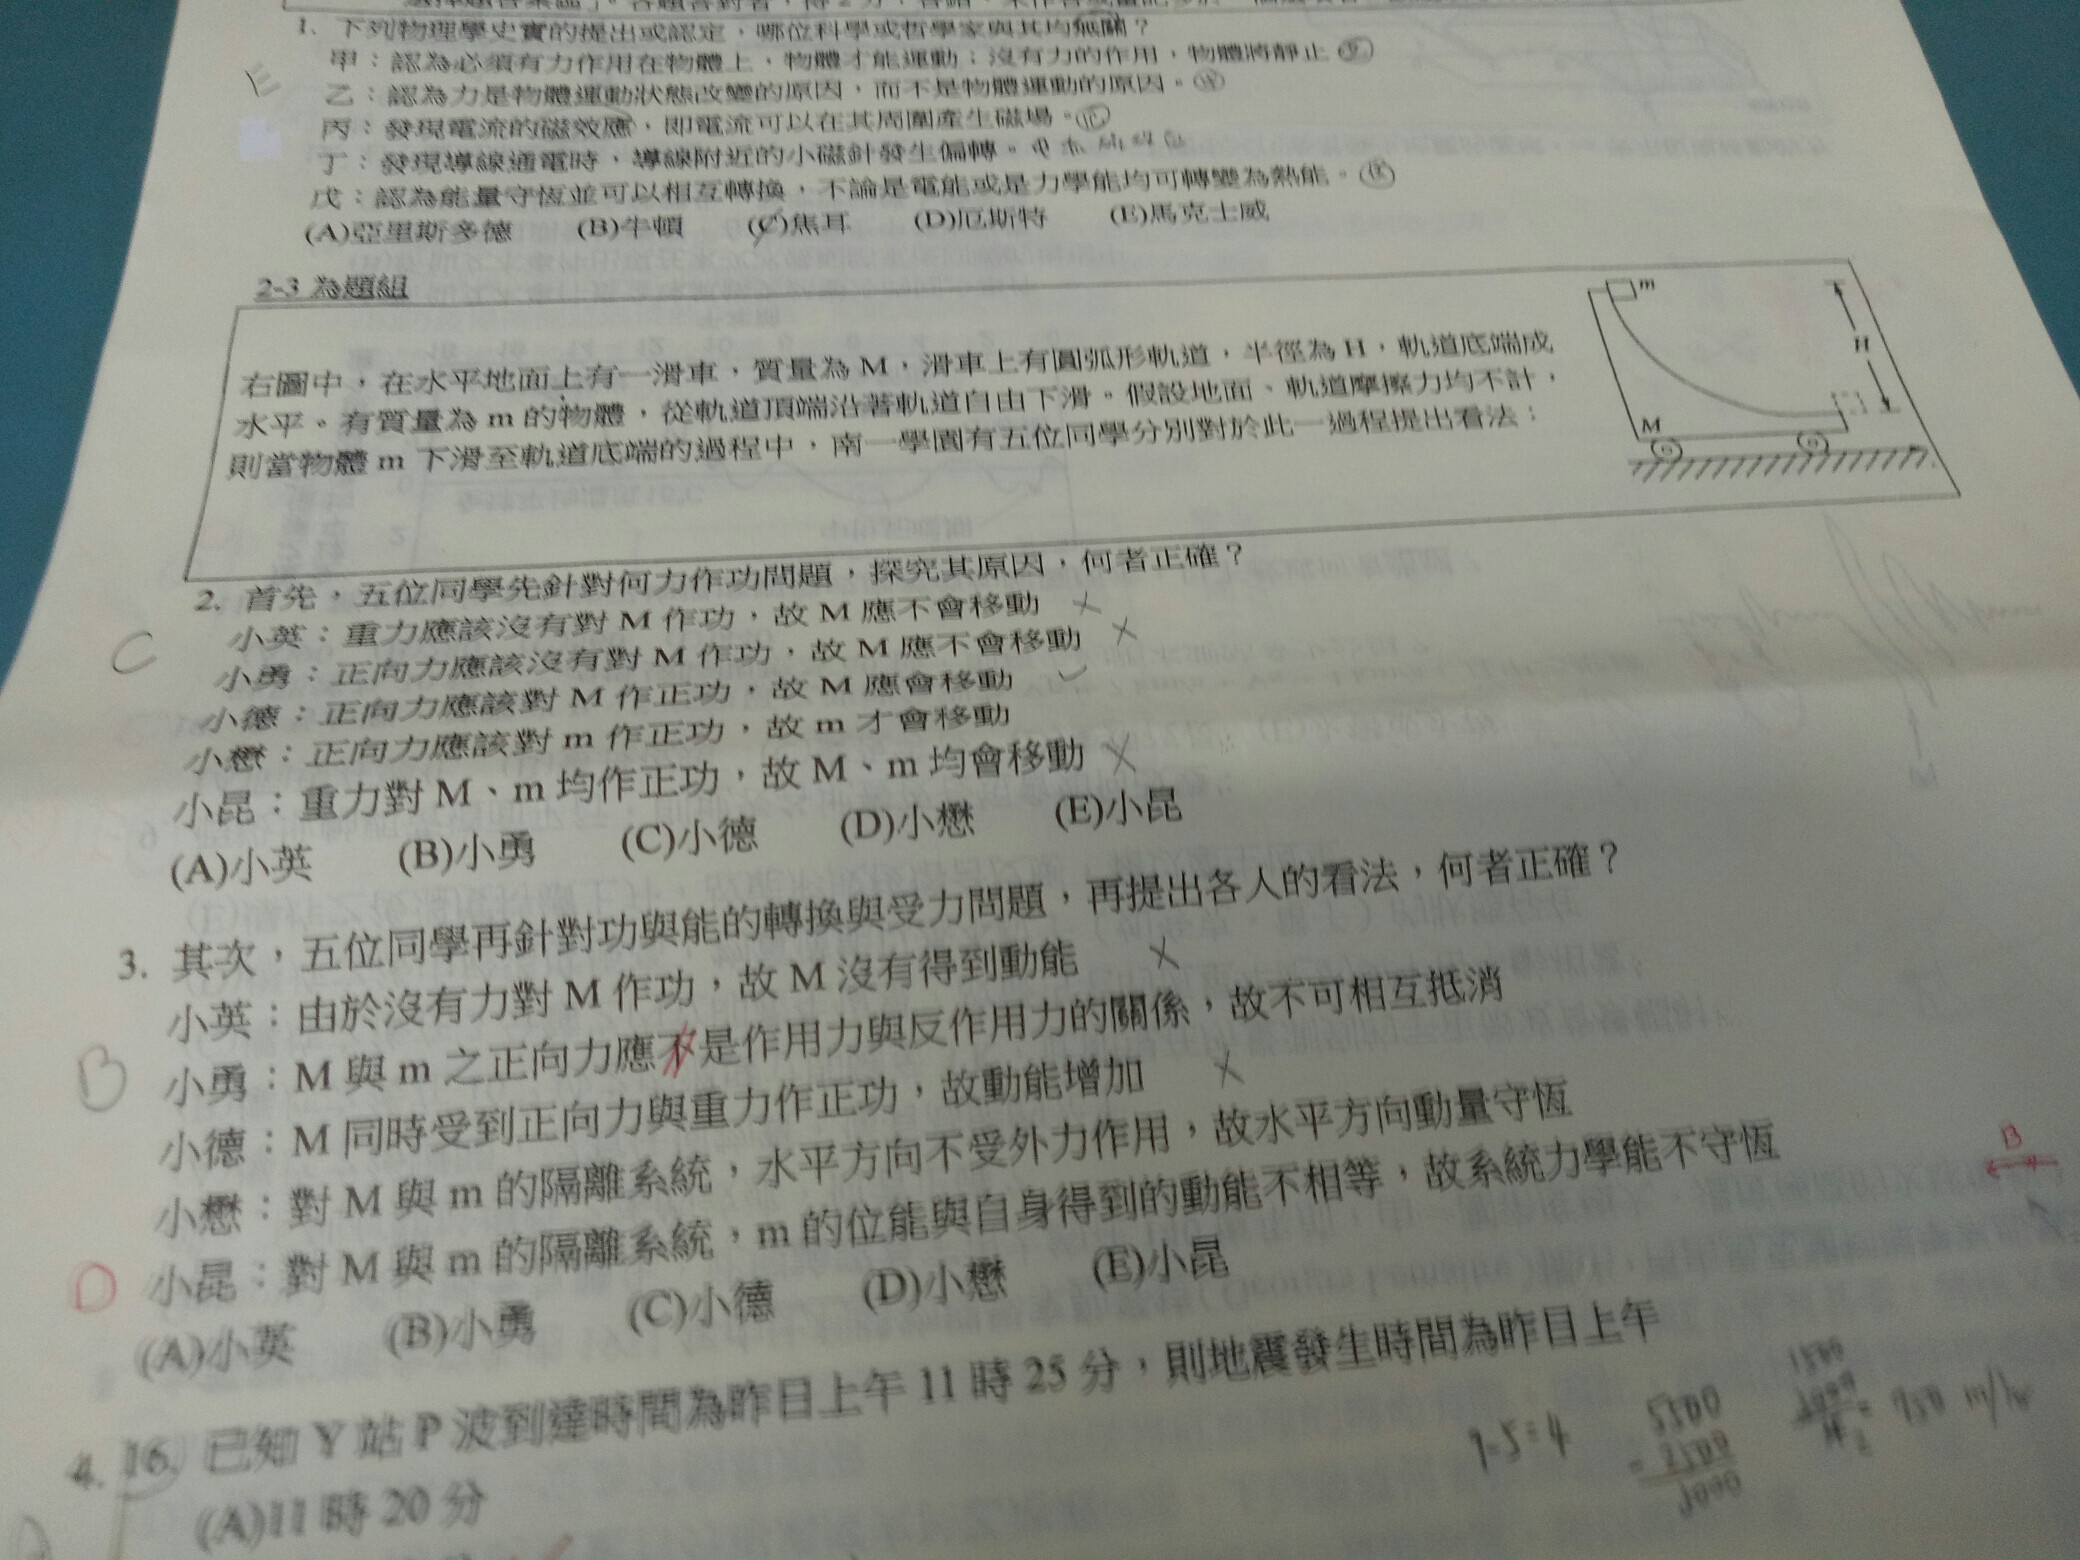 1. 下列物理學史實的提出或認定，哪位科學或哲學家與其均無關？
甲：認為必須有力作用在物體上，物體才能運動；沒有力的作用，物體將靜止
E
乙：認為力是物體運動狀態改變的原因，而不是物體運動的原因。
丙：發現電流的磁效應，即電流可以在其周圍產生磁場。
丁：發現導線通電時，導線附近的小磁針發生偏轉。
戊：認為能量守恆並可以相互轉換，不論是電能或是力學能均可轉變為熱能。
(A)亞里斯多德 (B)牛頓 (C)焦耳 (D)厄斯特 (E)馬克士威
2-3 為題組
右圖中，在水平地面上有一滑車，質量為 M，滑車上有圓弧形軌道，半徑為 H，軌道底端成
水平。有質量為 m 的物體，從軌道頂端沿著軌道自由下滑。假設地面、軌道摩擦力均不計，
則當物體 m 下滑至軌道底端的過程中，南一學園有五位同學分別對於此一過程提出看法：
m
H
M
2. 首先，五位同學先針對何力作功問題，探究其原因，何者正確？
小英：重力應該沒有對 M 作功，故 M 應不會移動
C
小勇：正向力應該沒有對 M 作功，故 M 應不會移動
小德：正向力應該對 M 作正功，故 M 應會移動
小懋：正向力應該對 m 作正功，故 m 才會移動
小昆：重力對 M、m 均作正功，故 M、m 均會移動
(A)小英 (B)小勇 (C)小德 (D)小懋 (E)小昆
3. 其次，五位同學再針對功與能的轉換與受力問題，再提出各人的看法，何者正確？
小英：由於沒有力對 M 作功，故 M 沒有得到動能
B
小勇：M 與 m 之正向力應不是作用力與反作用力的關係，故不可相互抵消
小德：M 同時受到正向力與重力作正功，故動能增加
小懋：對 M 與 m 的隔離系統，水平方向不受外力作用，故水平方向動量守恆
B
D
小昆：對 M 與 m 的隔離系統，m 的位能與自身得到的動能不相等，故系統力學能不守恆
(A)小英 (B)小勇 (C)小德 (D)小懋 (E)小昆
4. 16. 已知 Y 站 P 波到達時間為昨日上午 11 時 25 分，則地震發生時間為昨日上午
9-5=4
(A)11 時 20 分